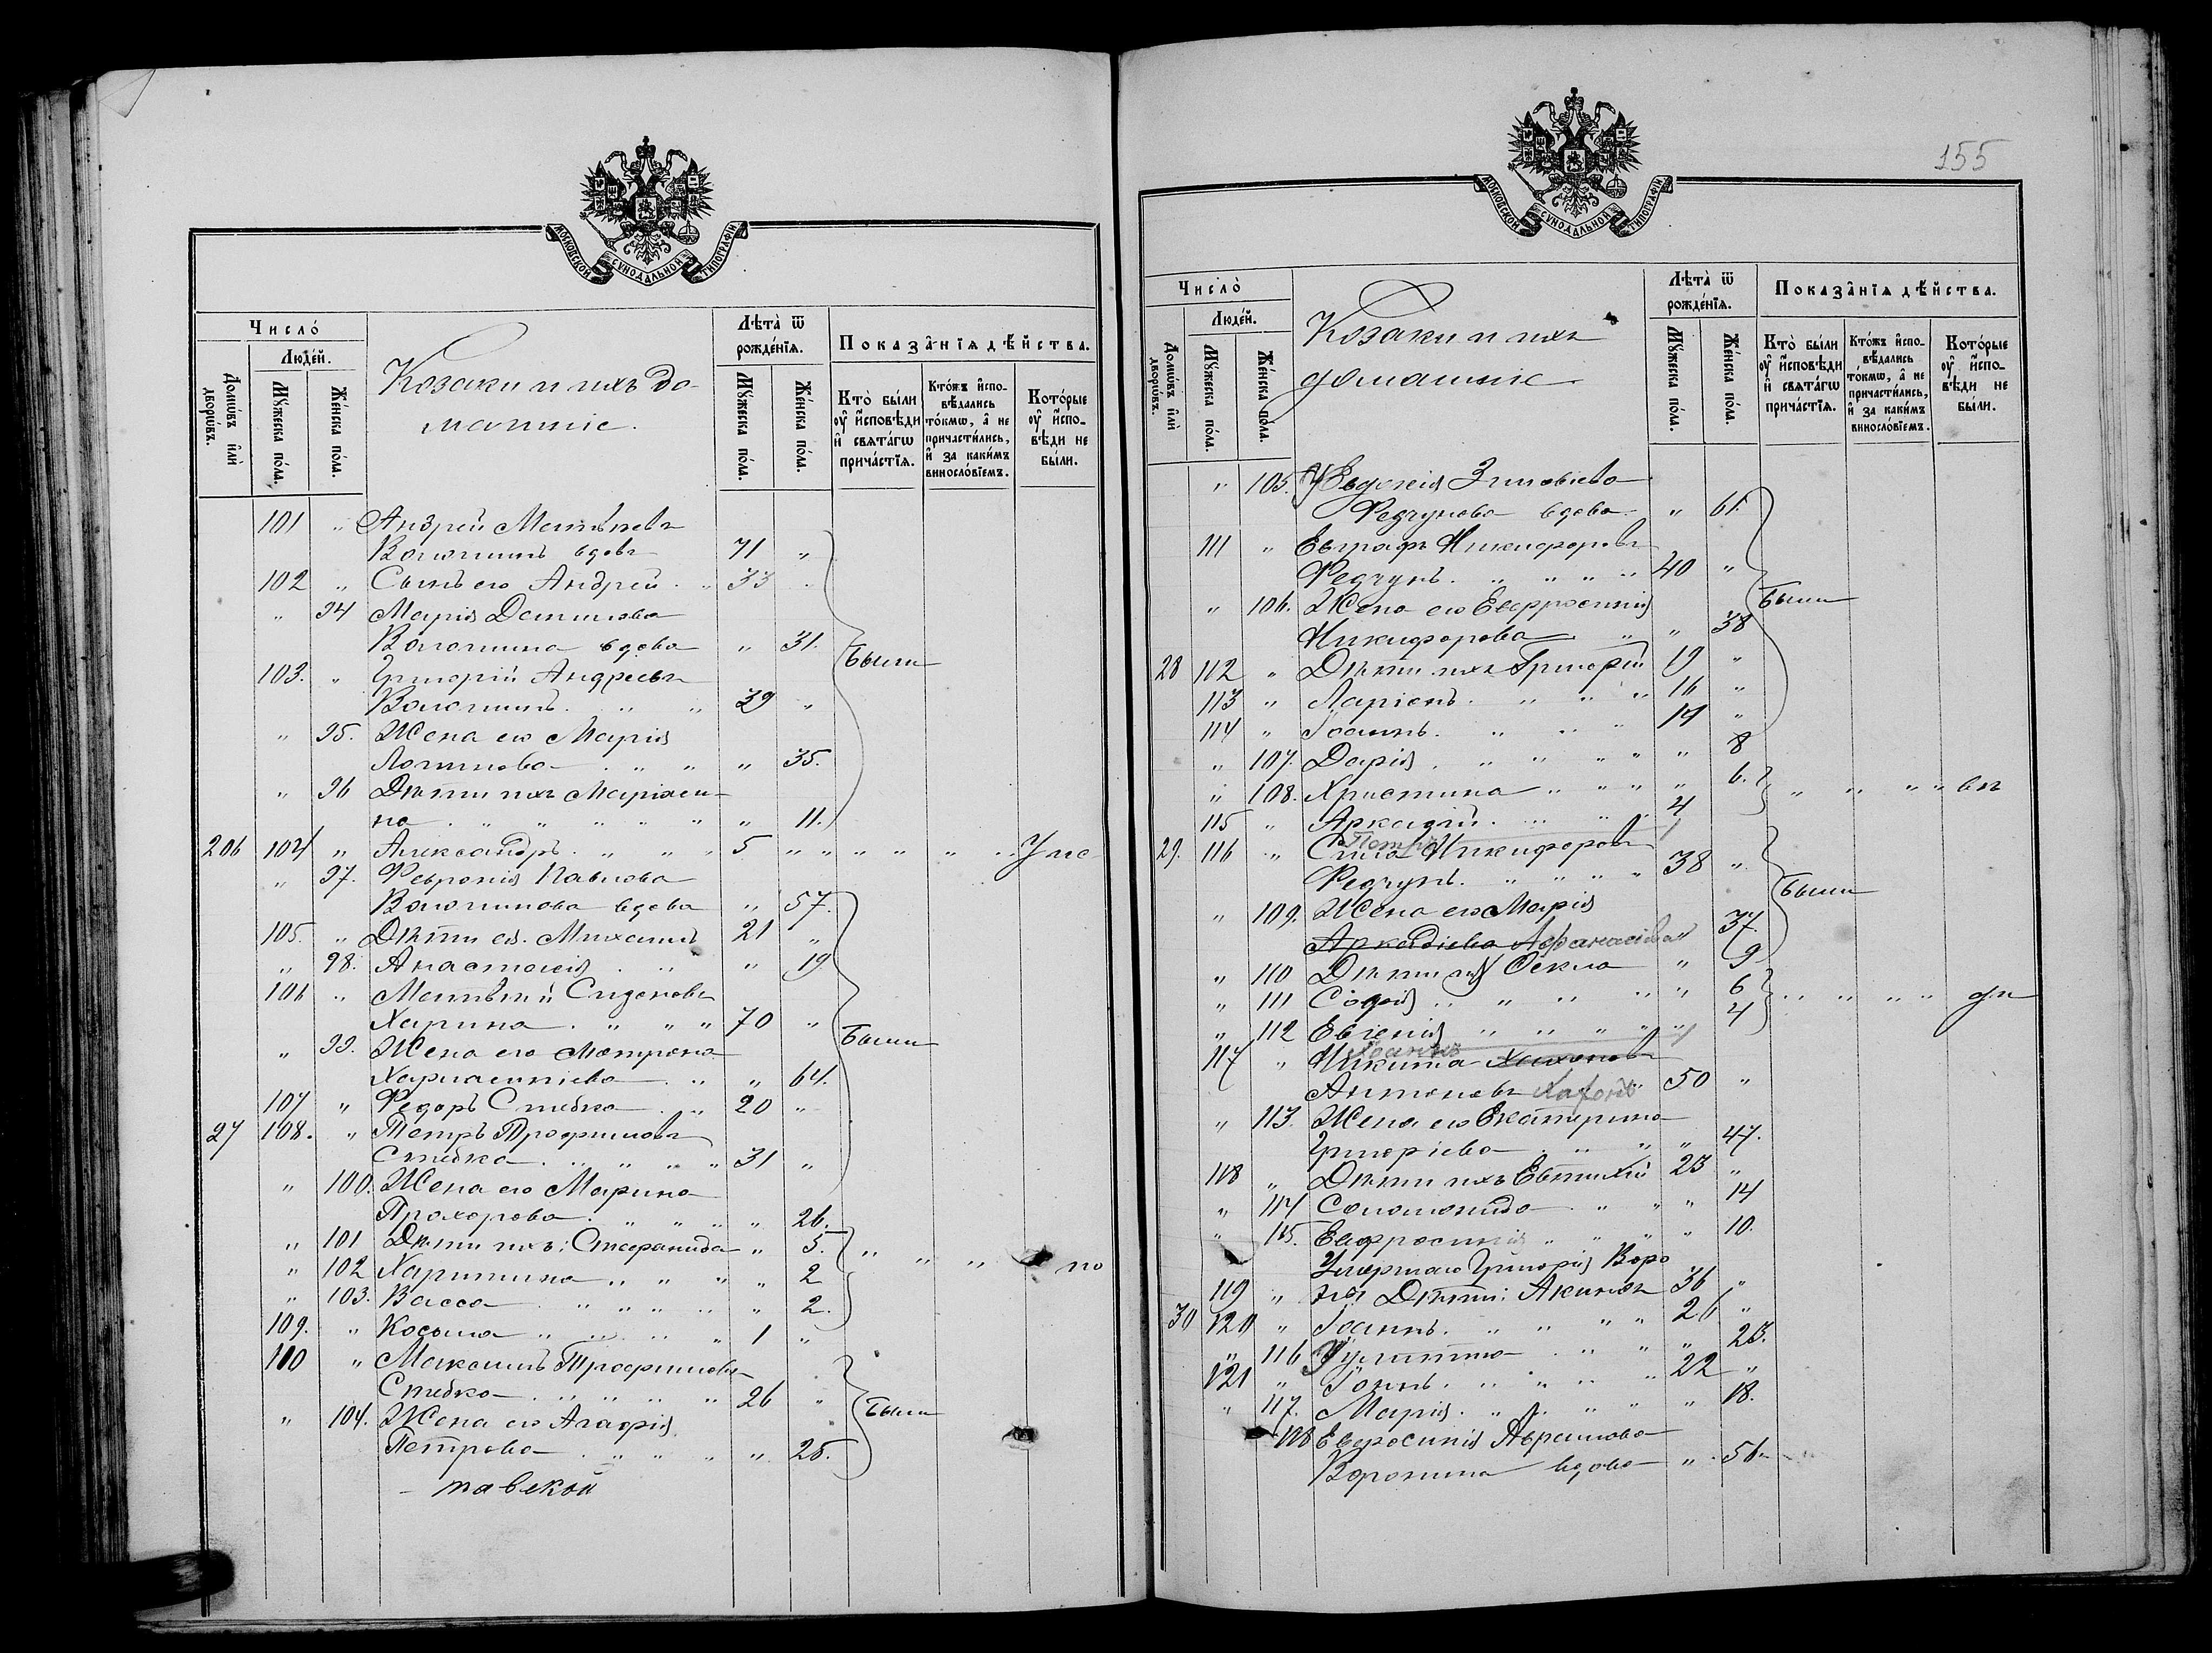 МОСКОВСКОЙ СѴНОДАЛЬНОЙ ТИПОГРАФІИ
Число̀
Люде́й.
Домѡ́въ и҆лѝ дворѡ́въ.
Мꙋ́жеска по́ла.
Же́нска по́ла.
Козаки и ихъ до-
машніе.
Лѣта̀ ѿ рожде́нїѧ.
Мꙋ́жеска по́ла.
Же́нска по́ла.
Показа̂нїѧ дѣ́йства.
Кто̀ бы́ли ᲂу҆ и҆сповѣ́ди и҆ свѧта́гѡ прича́стїѧ.
Кто́жъ и҆спо-вѣ́дались то́кмѡ, а҆ не причасти́лись, и҆ за каки́мъ винослóвїемъ.
Кото́рые ᲂу҆ и҆спо-вѣ́ди не бы́ли.
101 " Андрей Матвѣевъ
Волошинъ вдовъ 71 "
102 " Сынъ его Андрей " 33 "
" 94 Марія Данилова
Волошина вдова " 31.
103. " Григорій Андреевъ
Волошинъ. " " 39 "
были
" 95. Жена его Марія
Логинова " " " 35.
" 96 Дѣти ихъ Маріам-
на " " " " " " 11.
206 104 " Александръ. " " 5 " " " " " "
" 97. Февронія Павлова
Волошинова вдова " 57.
105. " Дѣти ея. Михаилъ 21 "
" 98. Анастасія " " " 19
106 " Матвѣй Сидоровъ
Харина " " " 70 "
" 99. Жена его Матрона
Харлампіева " " 64.
были
107 " Федоръ Стебко " 20 "
27 108. " Петръ Трофимовъ
Стебко " " " " 31 "
" 100. Жена его Марина
Прохорова " " " " 26.
" 101 Дѣти ихъ: Стефанида " 5. " " "
" 102 Харитина " " " " 2 по
" 103. Васса " " " " " 2.
109. " Косьма " " " " 1 "
110 " Максимъ Трофимовъ
Стебко " " " " 26 "
" 104. Жена его Агафія
были
Петрова " " " " " 25.
МОСКОВСКОЙ СѴНОДАЛЬНОЙ ТИПОГРАФІИ
155
Число̀
Люде́й.
Домѡ́въ и҆лѝ дворѡ́въ.
Мꙋ́жеска по́ла.
Же́нска по́ла.
Козаки и ихъ
домашніе
Лѣта̀ ѿ рожде́нїѧ.
Мꙋ́жеска по́ла.
Же́нска по́ла.
Показа̂нїѧ дѣ́йства.
Кто̀ бы́ли ᲂу҆ и҆сповѣ́ди и҆ свѧта́гѡ прича́стїѧ.
Кто́жъ и҆спо-вѣ́дались то́кмѡ, а҆ не причасти́лись, и҆ за каки́мъ винослóвїемъ.
Кото́рые ᲂу҆ и҆спо-вѣ́ди не бы́ли.
" 105. Евдокія Зиновіева
Редчунова вдова " 61.
111 " Евграфъ Никифоровъ
Редчунъ. " " " " 40 "
" 106. Жена его Евфросинія
были
Никифорова " " 38
28 112 " Дѣти ихъ Григорій 19 "
113 " Ларіонъ. " " " 16 "
114 " Іоаннъ. " " " 14 "
" 107. Дарія " " " " " 8
" 108. Христина " " " " 6. " " " "
115 " Аркадій. " " " 4
Петръ
29. 116 " Сила Никифоровъ
Редчунъ. " " " " 38 "
были
" 109. Жена его Марія
Аркадіева Афанасіева " 37.
" 110 Дѣти ихъ Фекла " 9
" 111 Софія " " " " " 6 " " " "
" 112 Евгенія " " " " " 4
Іоаннъ
117 " Никита
Антоновъ 50 "
" 113. Жена его Екатерина
Григоріева " " " 47.
118 " Дѣти ихъ Евтихій 23 "
" 114 Соломонида " " " 14
" 115. Евфросинія " " " " 10.
Умершаго Григорія Воро
119 " Дѣти: Акимъ 36 "
30 120 " Іоаннъ. " " " " 26 "
" 116 Улитта " " " " 23.
121 " Іоннъ. " " " " 22 "
" 117. Марія. " " " " " 18.
118 Евфросинія Абрамова
Воронина вдова " 56